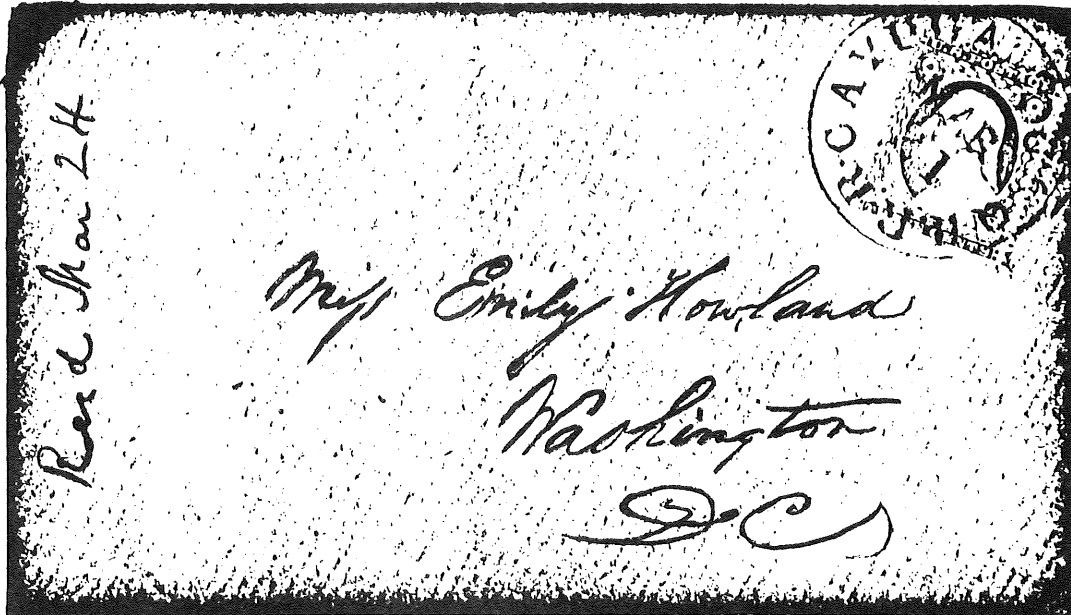 Recd Mar 24
Miss Emily Howland
Washington
D C